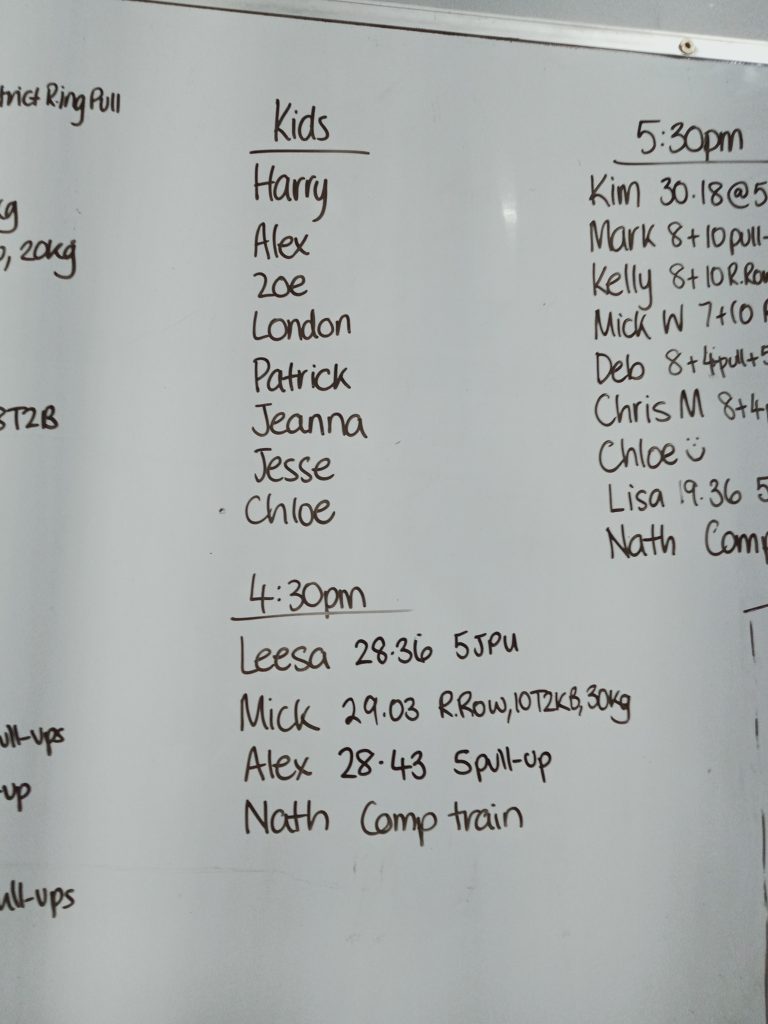 Ring Pull
20kg
T2B
Kids
Harry
Alex
Zoe
London
Patrick
Jeanna
Jesse
Chloe
4:30pm
Leesa 28.36 5JPU
Mick 29.03 R.Row, 10T2KB, 30kg
Alex 28.43 5pull-up
Nath Comp train
5:30pm
Kim 30.18@5
Mark 8+10pull-
Kelly 8+10 R.Row
Mick W 7+10 R
Deb 8+4pull+5
Chris M 8+4p
Chloe
Lisa 19.36 5
Nath Comp